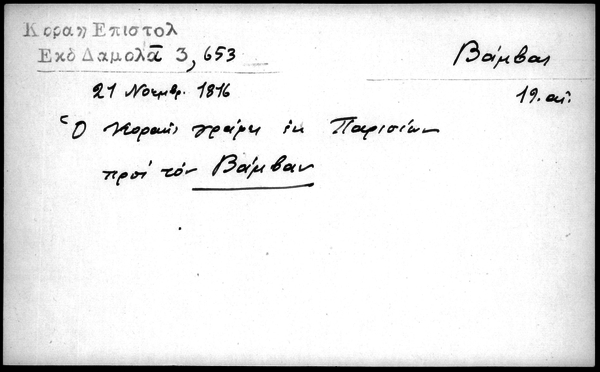 Κοραη Επιστολ
Εκδ Δαμαλᾶ 3, 653
Βάμβας
21 Νοεμβρ. 1816
19. αἰ.
Ὁ Κοραῆς γράφει ἐκ Παρισίων
πρὸς τὸν Βάμβαν